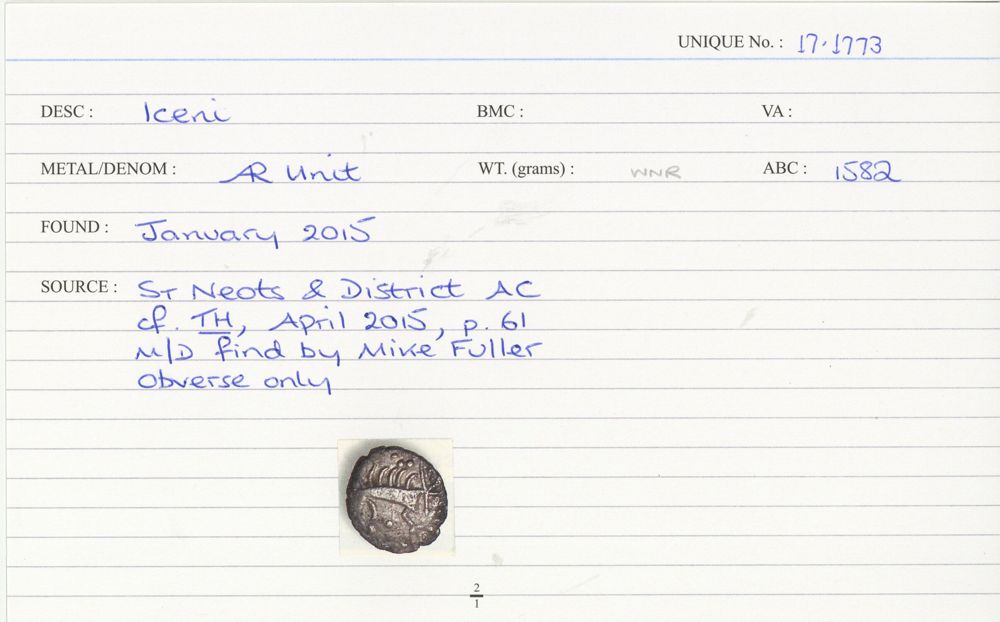 UNIQUE No. : 17.1773
DESC : Iceni BMC : VA :
METAL/DENOM : AR Unit WT. (grams) : WNR ABC : 1582
FOUND : January 2015
SOURCE : ST Neots & District AC
cf. TH, April 2015, p. 61
M/D find by Mike Fuller
Obverse only
2
1